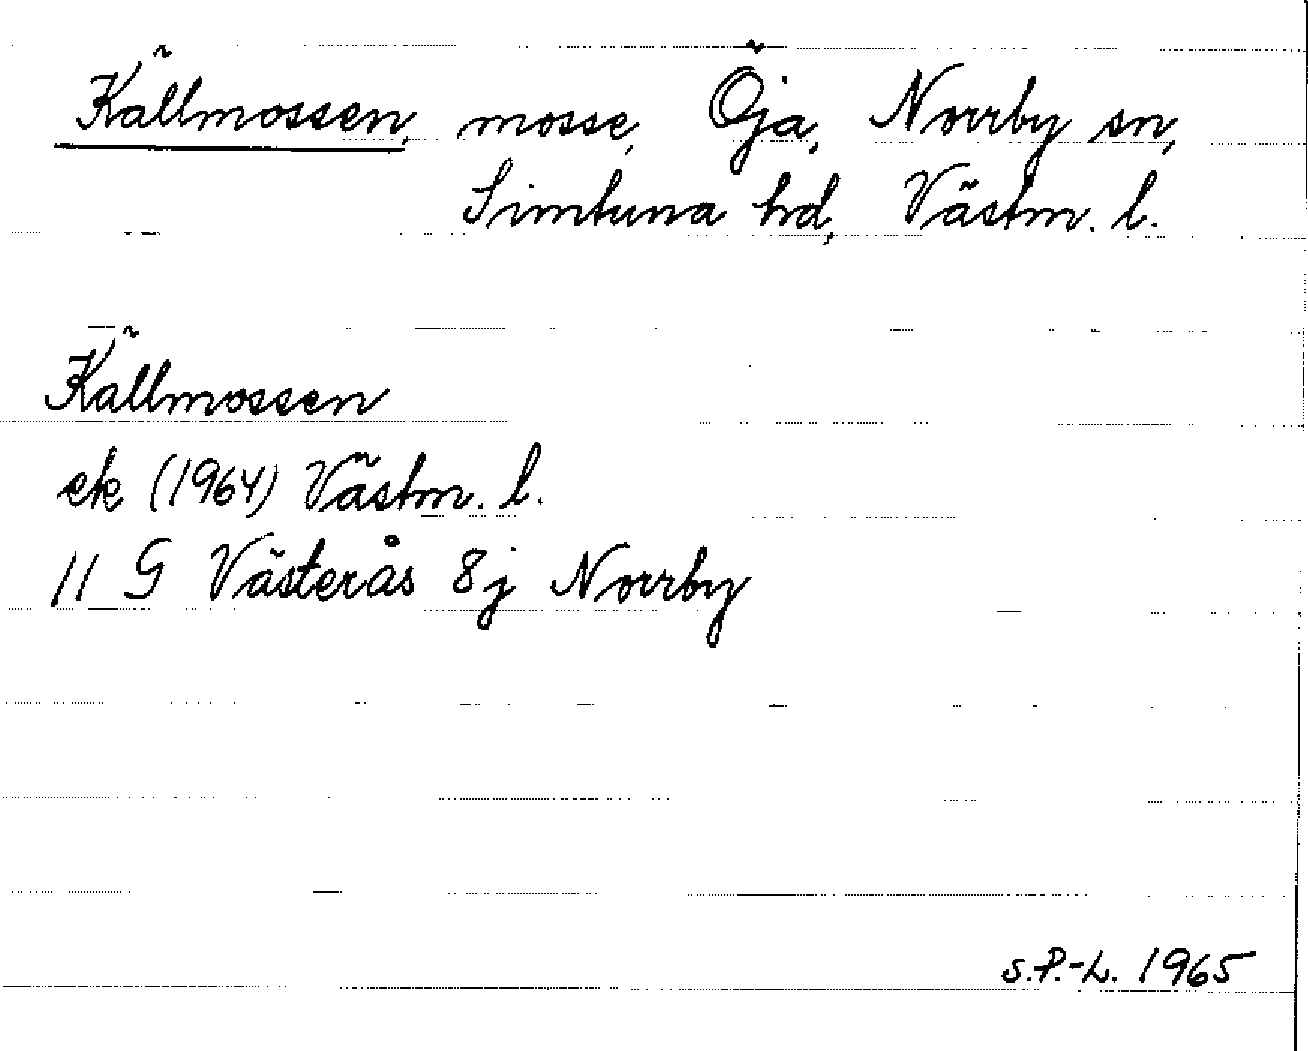 Källmossen, mosse, Öja, Norrby sn,
Simtuna hd, Västm. l.
Källmossen
ek (1964) Västm. l.
11 G Västerås 8j Norrby
S.P.-L. 1965